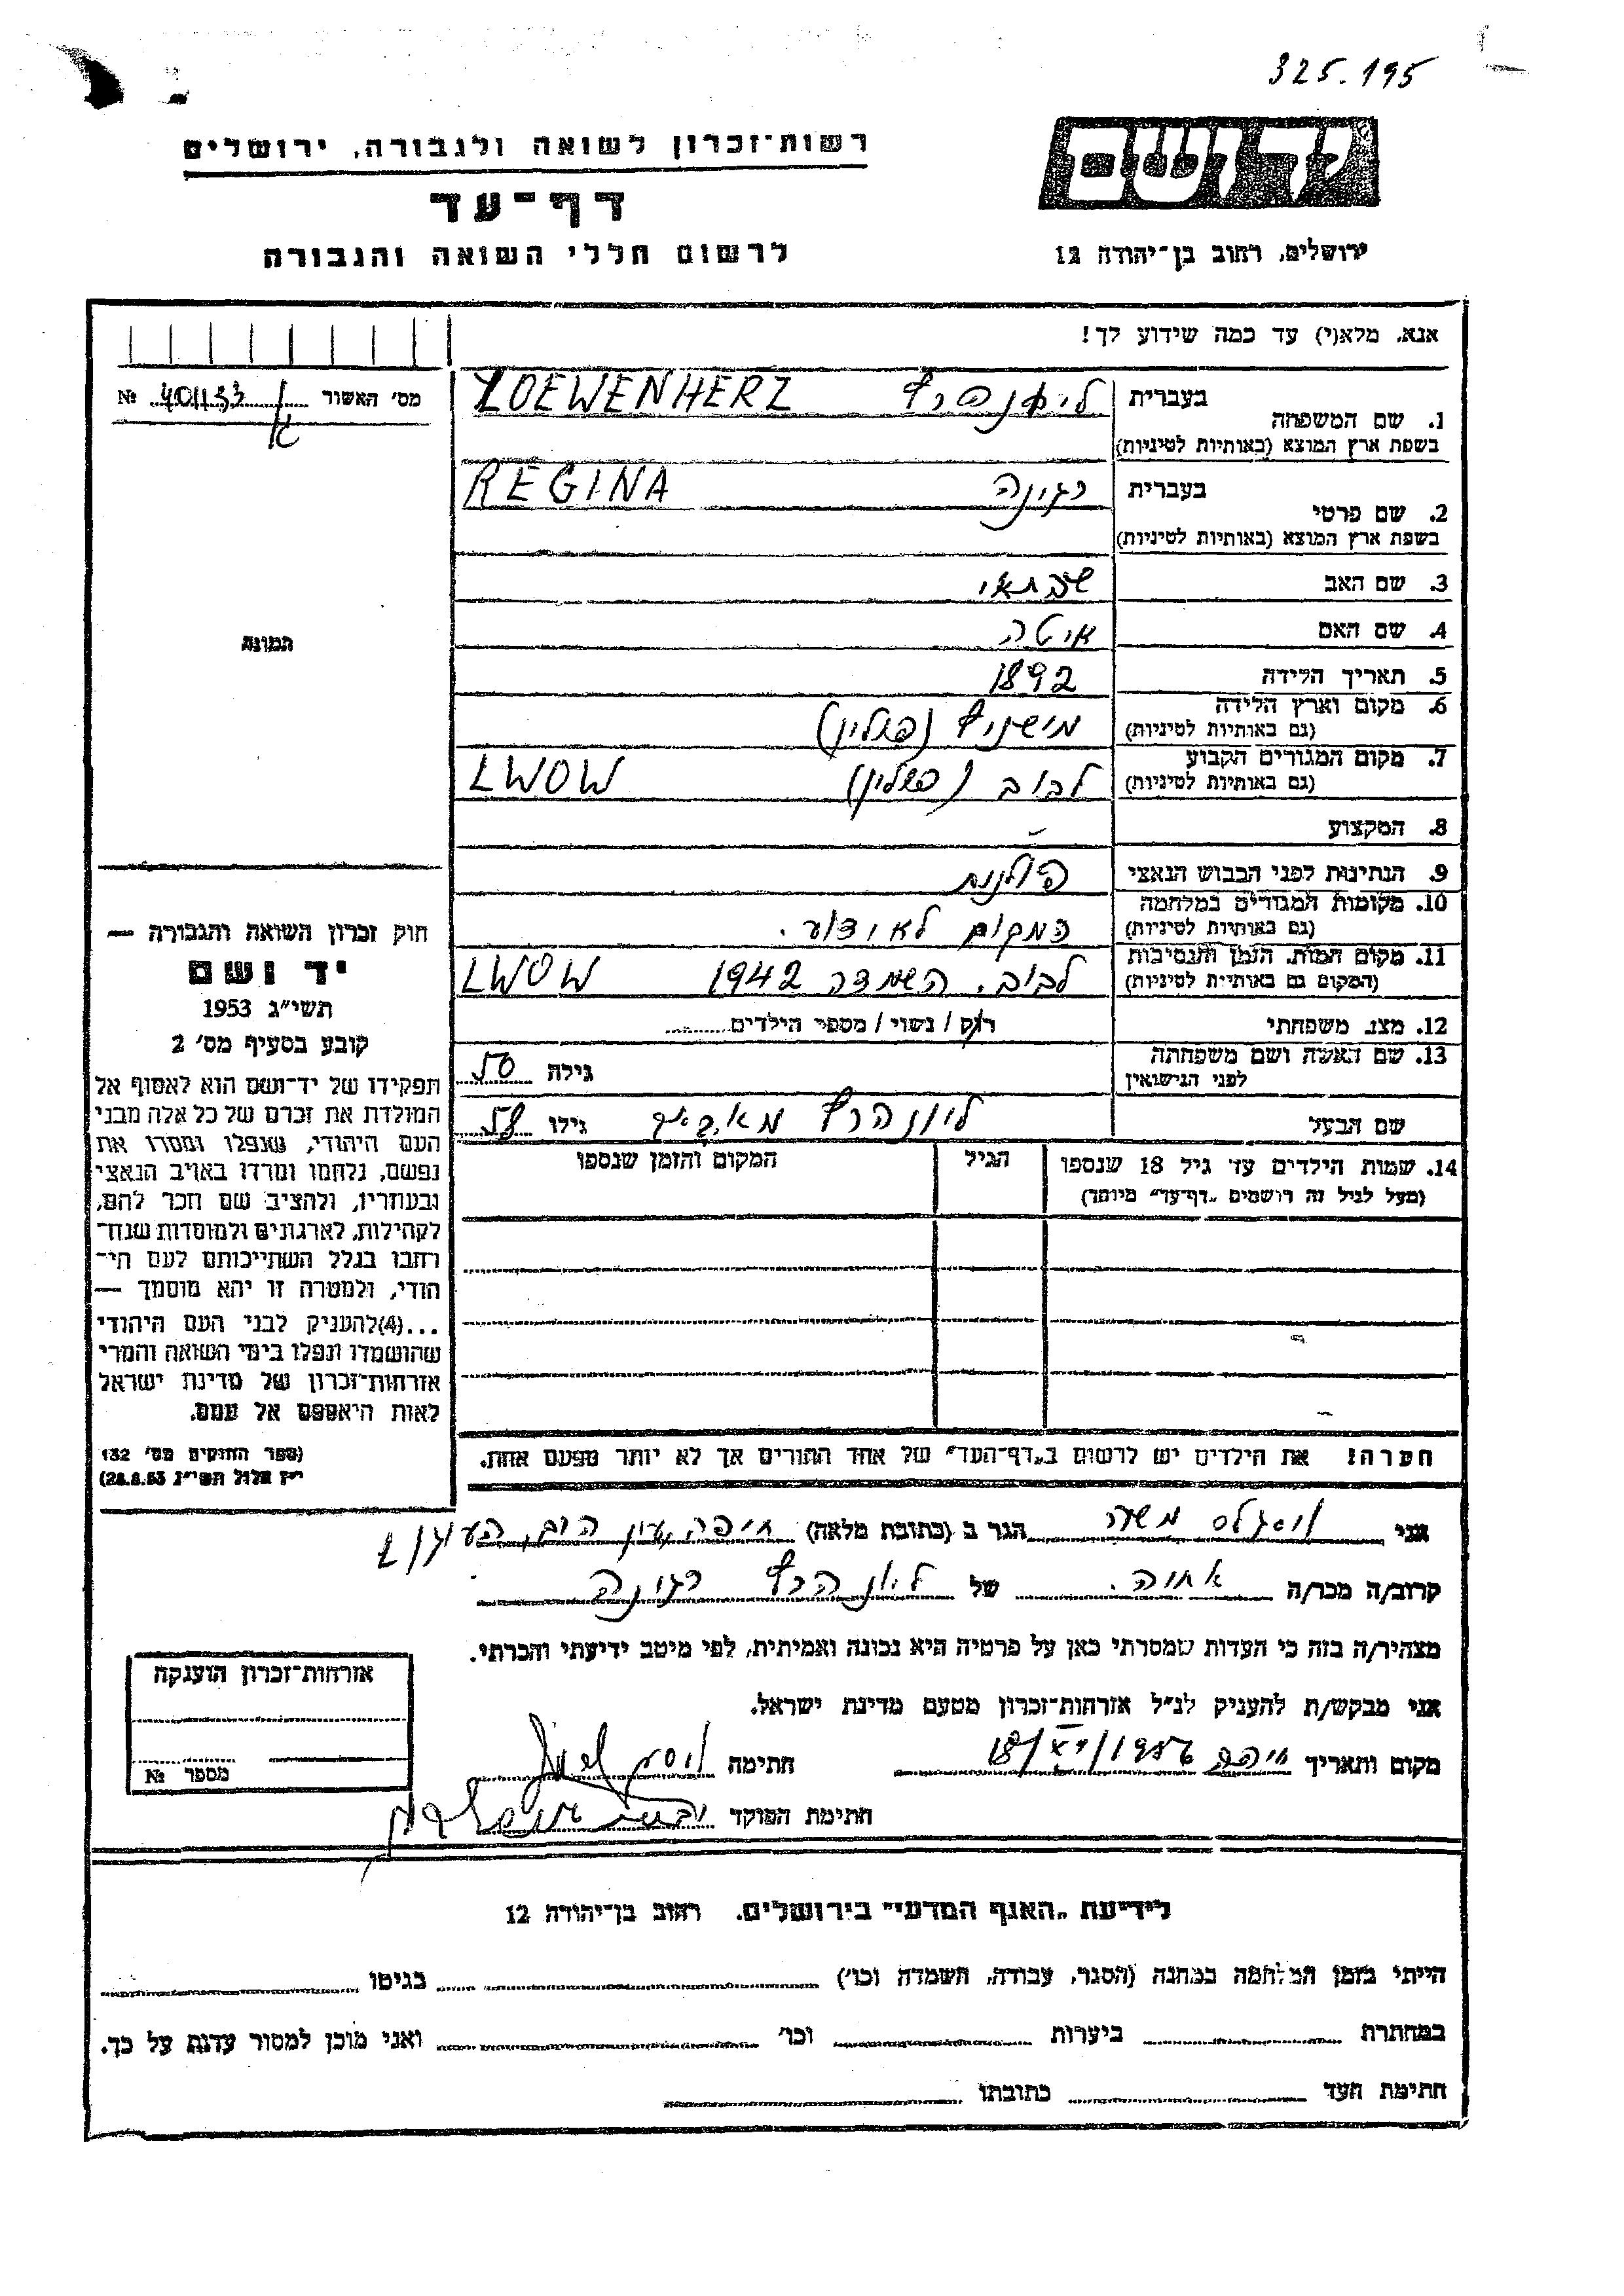 325.195
יד ושם
רשות-זכרון לשואה ולגבורה, ירושלים
דף-עד
לרשום חללי השואה והגבורה
ירושלים, רחוב בן-יהודה 12
אנא, מלא(י) עד כמה שידוע לך!
מס' האשור № 401153
1. שם המשפחה בעברית
בשפת ארץ המוצא (באותיות לטיניות)
LOEWENHERZ
2. שם פרטי בעברית רגינה
בשפת ארץ המוצא (באותיות לטיניות)
REGINA
3. שם האב שבתאי
4. שם האם איטה
5. תאריך הלידה 1892
6. מקום וארץ הלידה (פולין)
(גם באותיות לטיניות)
7. מקום המגורים הקבוע לבוב (פולין) LWOW
(גם באותיות לטיניות)
8. המקצוע –
9. הנתינות לפני הכבוש הנאצי פולנית
10. מקומות המגורים במלחמה המקום לא ידוע.
(גם באותיות לטיניות)
11. מקום המות, הזמן והנסיבות לבוב, השמדה 1942 LWOW
(המקום גם באותיות לטיניות)
12. מצב משפחתי רווק / נשוי / מספר הילדים
13. שם האשה ושם משפחתה
לפני הנישואין
גילה 50
שם הבעל ליונהרץ גילו 58
14. שמות הילדים עד גיל 18 שנספו
(מעל לגיל זה רושמים "דף-עד" מיוחד)
הגיל
המקום והזמן שנספו
הערה! את הילדים יש לרשום ב"דף-העד" של אחד ההורים אך לא יותר מפעם אחת.
תמונה
חוק זכרון השואה והגבורה —
יד ושם
תשי"ג 1953
קובע בסעיף מס' 2
תפקידו של יד-ושם הוא לאסוף אל
המולדת את זכרם של כל אלה מבני
העם היהודי, שנפלו ומסרו את
נפשם, נלחמו ומרדו באויב הנאצי
ובעוזריו, ולהציב שם וזכר להם,
לקהילות, לארגונים ולמוסדות שנח-
רבו בגלל השתייכותם לעם הי-
הודי, ולמטרה זו יהא מוסמך —
...(4)להעניק לבני העם היהודי
שהושמדו ונפלו בימי השואה והמרי
אזרחות-זכרון של מדינת ישראל
לאות היאספם אל עמם.
(ספר החוקים מס' 132
י"ז אלול תשי"ג 28.8.53)
אני משה הגר ב (כתובת מלאה) חיפה, עין הים,
קרוב/ה מכר/ה אחיה. של ליונהרץ רגינה
מצהיר/ה בזה כי העדות שמסרתי כאן על פרטיה היא נכונה ואמיתית, לפי מיטב ידיעתי והכרתי.
אני מבקש/ת להעניק לנ"ל אזרחות-זכרון מטעם מדינת ישראל.
מקום ותאריך חיפה חתימה
חתימת הפוקד
אזרחות-זכרון הוענקה
מספר №
לידיעת "האגף המדעי" בירושלים, רחוב בן-יהודה 12
הייתי בזמן המלחמה במחנה (הסגר, עבודה, השמדה וכו') בגיטו
במחתרת ביערות וכו' ואני מוכן למסור עדות על כך.
חתימת העד כתובתו